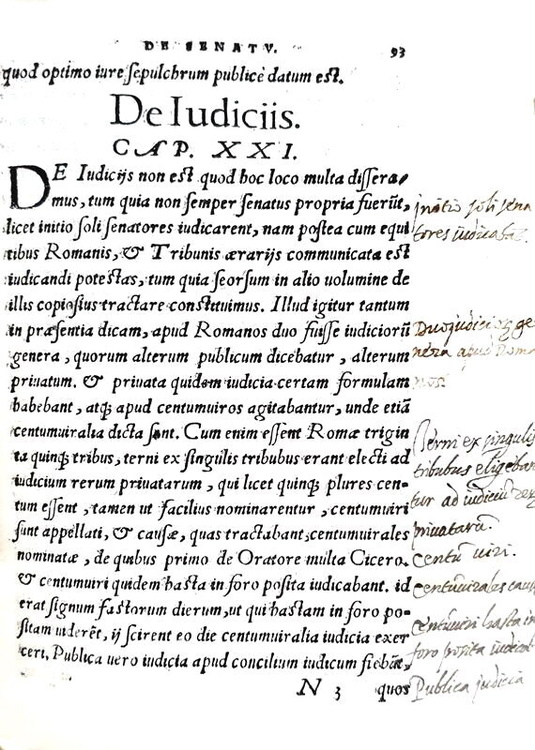 DE SENATV. 93
quod optimo iure sepulchrum publicè datum est.
De Iudiciis.
CAP. XXI.
DE Iudicijs non est quod hoc loco multa dissera-
mus, tum quia non semper senatus propria fuerūt,
licet initio soli senatores iudicarent, nam postea cum equi
tibus Romanis, & Tribunis ærarijs communicata est
iudicandi potestas, tum quia seorsum in alio uolumine de
illis copiosius tractare constituimus. Illud igitur tantum
in præsentia dicam, apud Romanos duo fuisse iudiciorū
genera, quorum alterum publicum dicebatur, alterum
priuatum. & priuata quidem iudicia certam formulam
habebant, atq; apud centumuiros agitabantur, unde etiā
centumuiralia dicta sunt. Cum enim essent Romæ trigin
ta quinq; tribus, terni ex singulis tribubus erant electi ad
iudicium rerum priuatarum, qui licet quinq; plures cen-
tum essent, tamen ut facilius nominarentur, centumuiri
sunt appellati, & causæ, quas tractabant, centumuirales
nominatæ, de quibus primo de Oratore multa Cicero.
& centumuiri quidem hasta in foro posita iudicabant. id
erat signum fastorum dierum, ut qui hastam in foro po-
sitam uiderēt, ij scirent eo die centumuiralia iudicia exer
ceri. Publica uero iudicia apud concilium iudicum fiebāt,
N 3 quos
initio soli sena
tores iudicabāt.
Duo iudiciorū ge
nera apud Roma
nos.
Terni ex singulis
tribubus eligeban
tur ad iudiciū rerū
priuatarū.
Centū uiri.
Centūuirales cau
Centūuiri hasta in
foro posita iudicab
Publica judicia